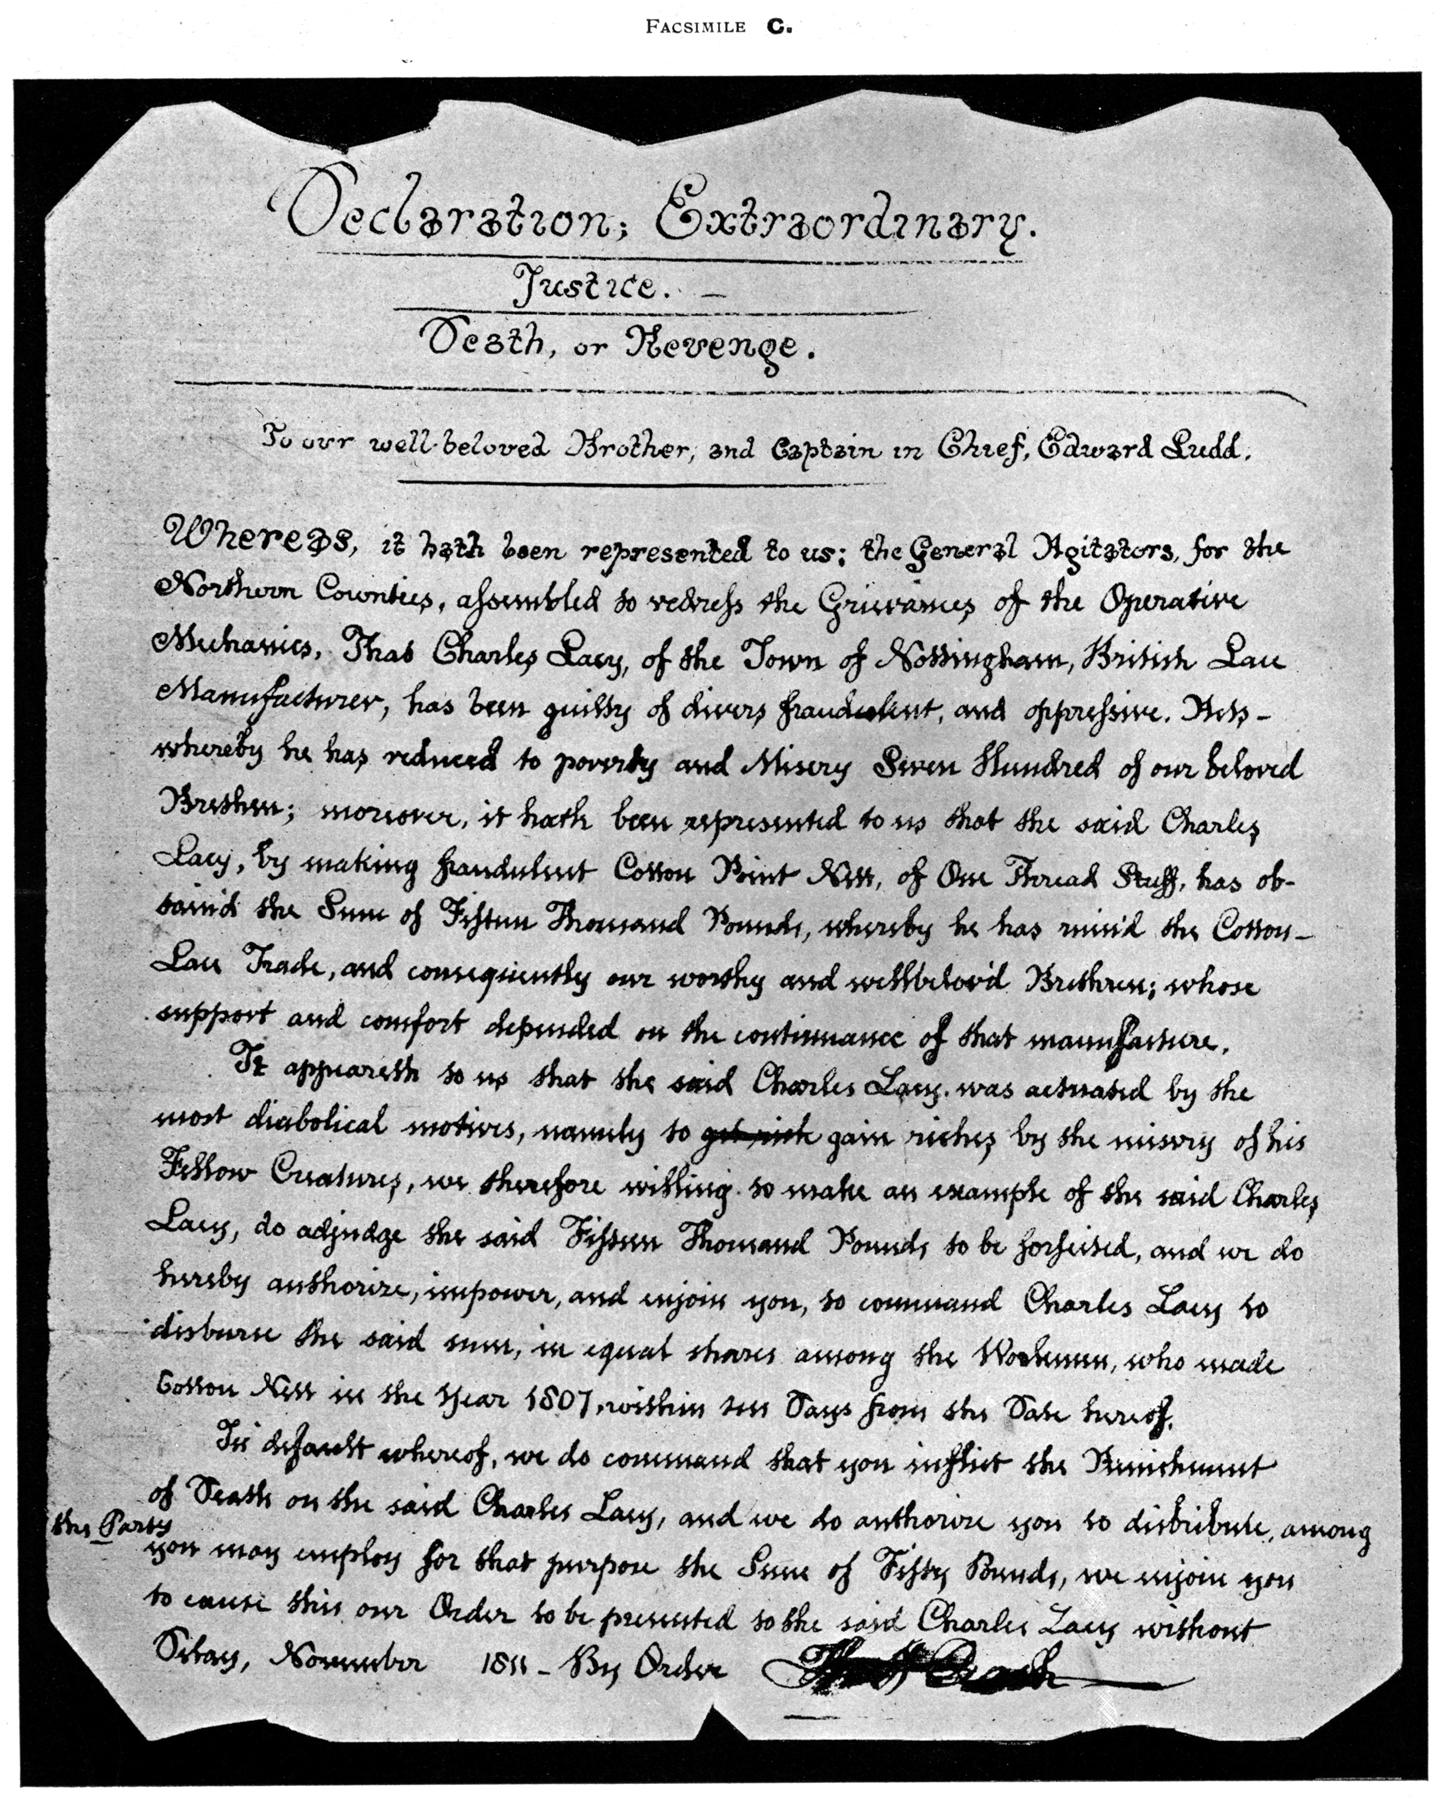 FACSIMILE C.
Declaration; Extraordinary.
Justice.
Death, or Revenge.
To our well-beloved Brother, and Captain in Chief, Edward Ludd.
Whereas, it hath been represented to us; the General Agitators, for the
Northern Counties, assembled to redress the Grievances of the Operative
Mechanics, That Charles Lacy, of the Town of Nottingham, British Lace
Manufacturer, has been guilty of divers fraudulent, and oppressive. Acts-
whereby he has reduced to poverty and Misery Seven Hundred of our beloved
Brethen; moreover, it hath been represented to us that the said Charles
Lacy, by making fraudulent Cotton Point Nett, of One Thread Stuff, has ob-
tain'd the Sum of Fifteen Thousand Pounds, whereby he has ruin'd the Cotton-
Lace Trade, and consequently our worthy and wellbelov'd Brethren; whose
support and comfort depended on the continuance of that manufacture.
It appeareth to us that the said Charles Lacy. was actuated by the
most diabolical motives, namely to get rich gain riches by the misery of his
Fellow Creatures, we therefore willing to make an example of the said Charles
Lacy, do adjudge the said Fifteen Thousand Pounds to be forfeited, and we do
hereby authorize, impower, and enjoin you, to command Charles Lacy to
disburse the said sum, in equal shares among the Workmen, who made
Cotton Nett in the Year 1807, within ten Days from the Date hereof.
In default whereof, we do command that you inflict the Punishment
of Death on the said Charles Lacy, and we do authorize you to distribute, among
the Party
you may employ for that purpose the Sum of Fifty Pounds, we enjoin you
to cause this our Order to be presented to the said Charles Lacy without
Delay, November 1811 - By Order